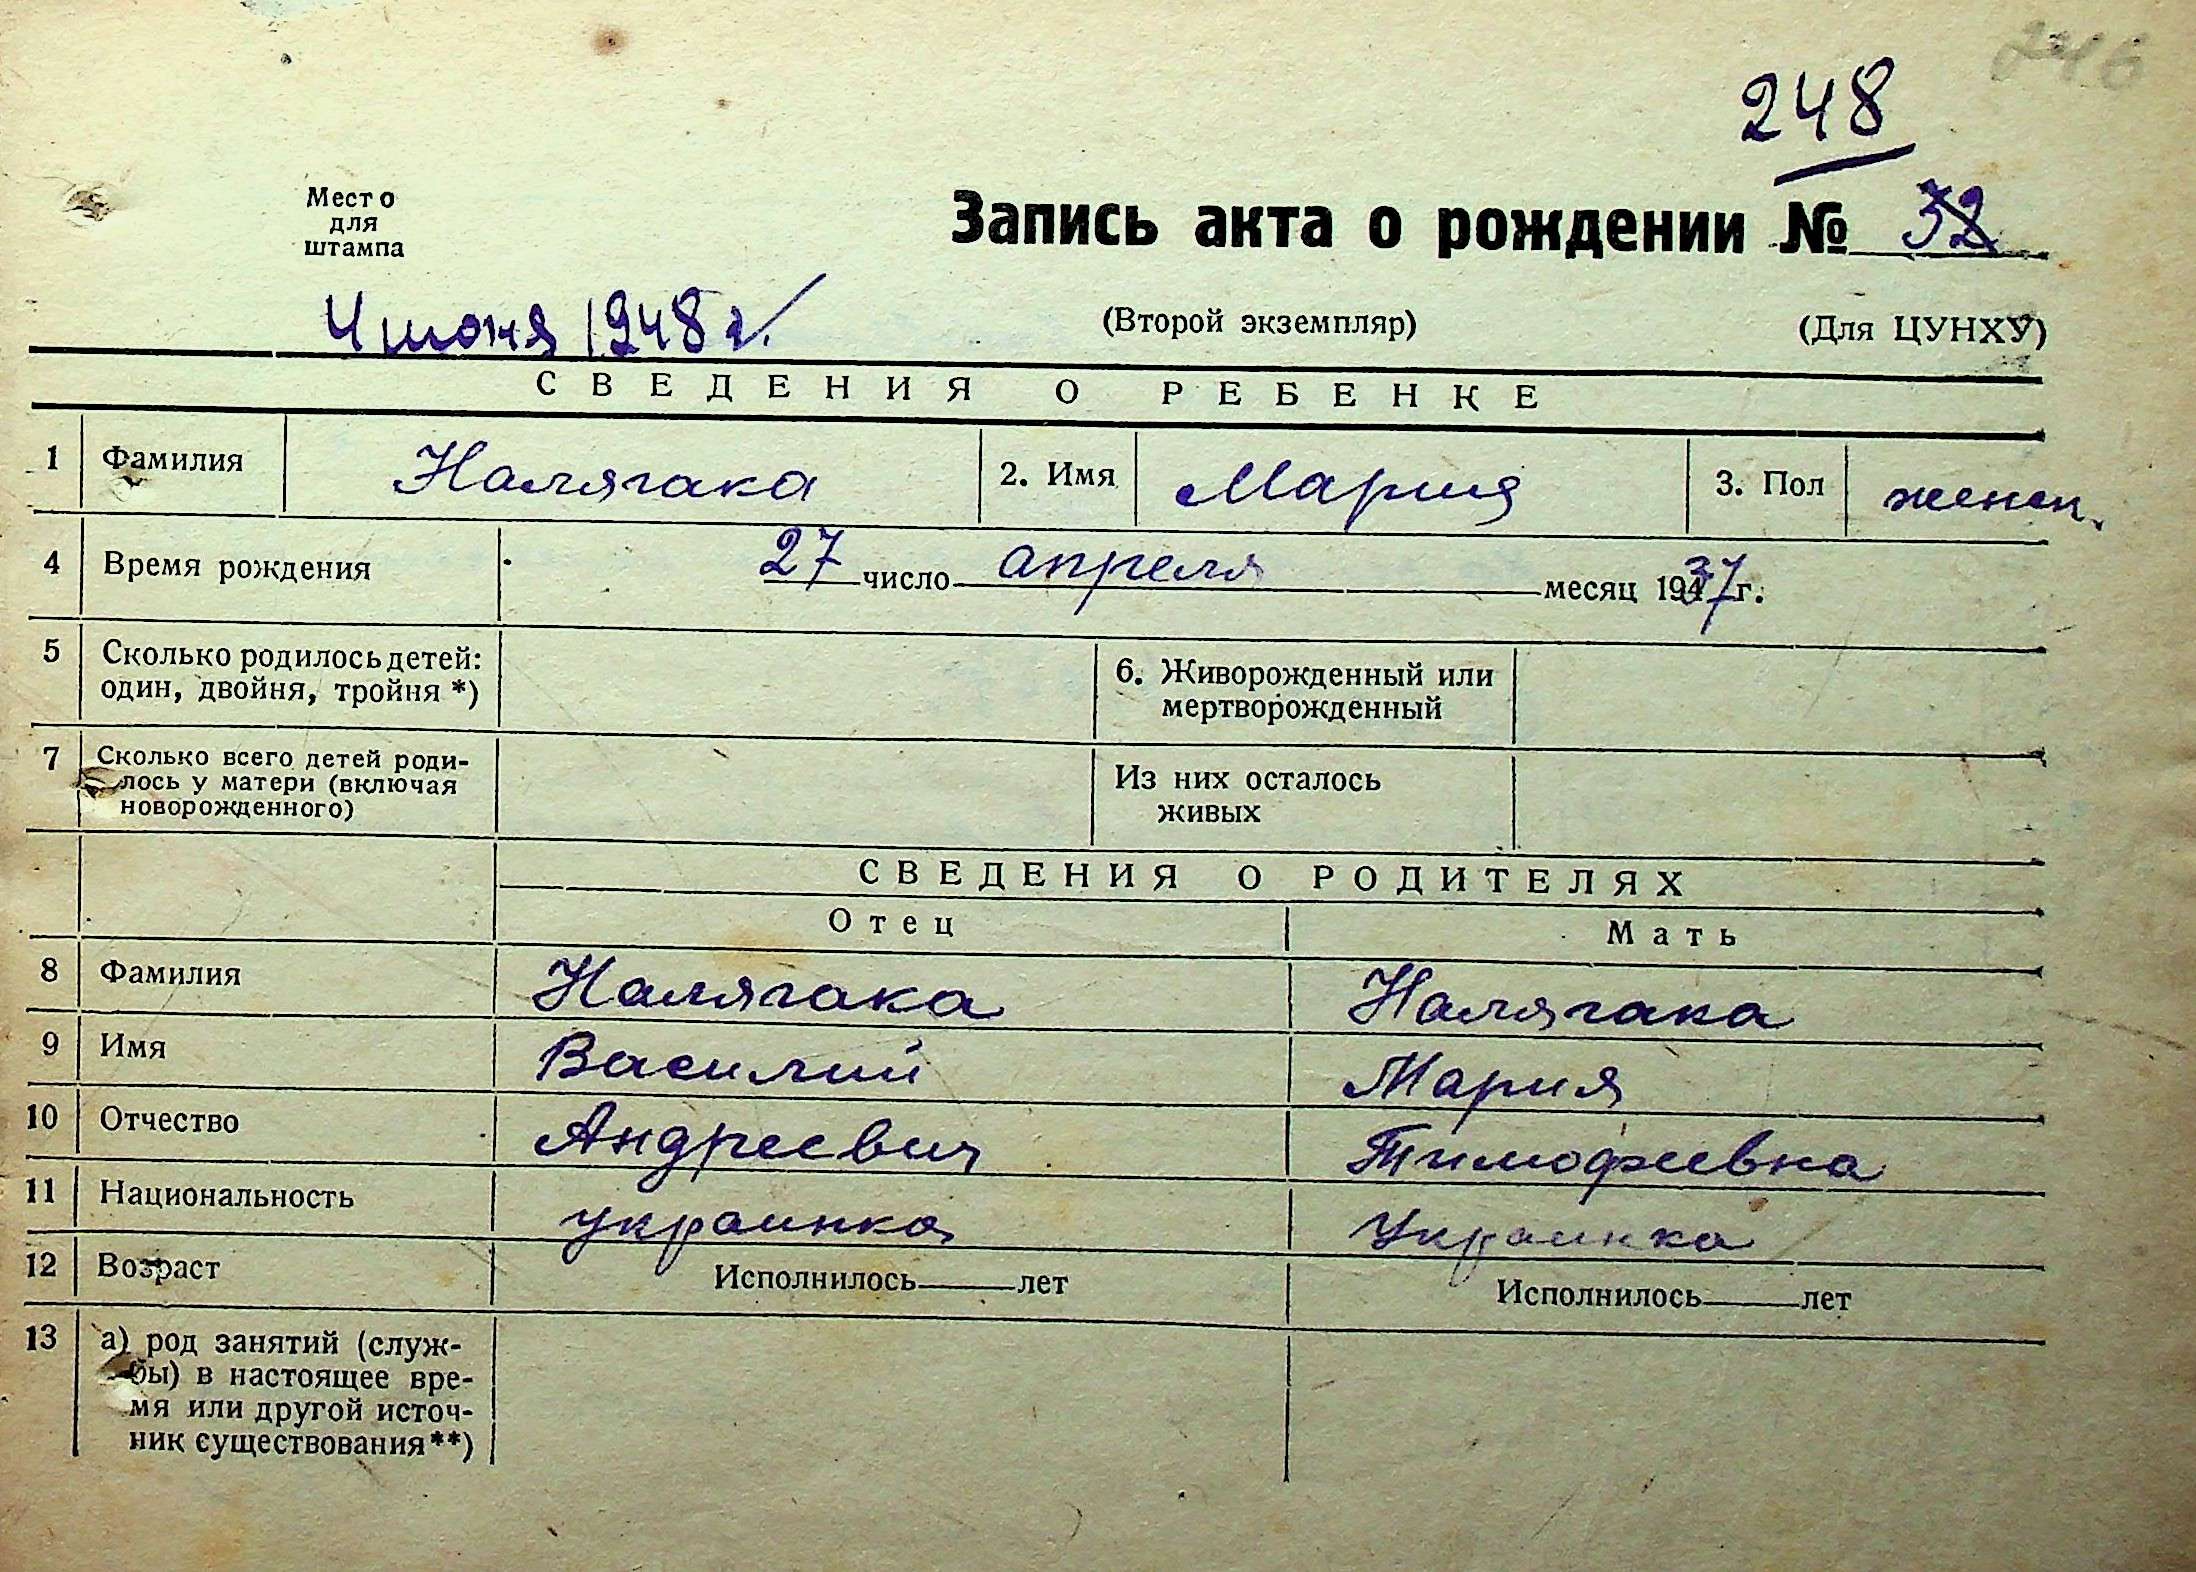 246
248
Место
для
штампа
Запись акта о рождении № 32
4 июня 1948 г.
(Второй экземпляр)
(Для ЦУНХУ)
СВЕДЕНИЯ О РЕБЕНКЕ
1 Фамилия Налягака 2. Имя Мария 3. Пол женск.
4 Время рождения 27 число апреля месяц 1937 г.
5 Сколько родилось детей:
один, двойня, тройня *)
6. Живорожденный или
мертворожденный
7 Сколько всего детей роди-
лось у матери (включая
новорожденного)
Из них осталось
живых
СВЕДЕНИЯ О РОДИТЕЛЯХ
Отец Мать
8 Фамилия Налягака Налягака
9 Имя Василий Мария
10 Отчество Андреевич Тимофеевна
11 Национальность украинка Украинка
12 Возраст Исполнилось лет Исполнилось лет
13 а) род занятий (служ-
бы) в настоящее вре-
мя или другой источ-
ник существования**)